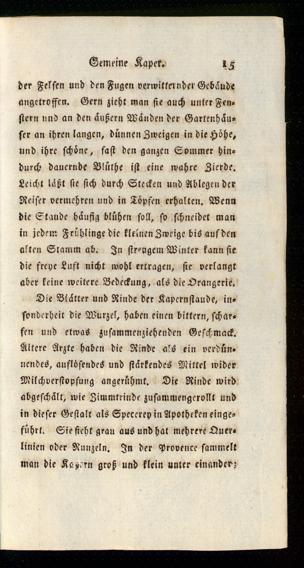 Gemeine Kaper. 15
der Felsen und den Fugen verwitternder Gebäude
angetroffen. Gern zieht man sie auch unter Fen-
stern und an den äußern Wänden der Gartenhäu-
ser an ihren langen, dünnen Zweigen in die Höhe,
und ihre schöne, fast den ganzen Sommer hin-
durch dauernde Blüthe ist eine wahre Zierde.
Leicht läßt sie sich durch Stecken und Ablegen der
Reiser vermehren und in Töpfen erhalten. Wenn
die Staude häufig blühen soll, so schneidet man
in jedem Frühlinge die kleinen Zweige bis auf den
alten Stamm ab. In strengem Winter kann sie
die freye Luft nicht wohl ertragen, sie verlangt
aber keine weitere Bedeckung, als die Orangerie.
Die Blätter und Rinde der Kapernstaude, in-
sonderheit die Wurzel, haben einen bittern, schar-
fen und etwas zusammenziehenden Geschmack.
Ältere Ärzte haben die Rinde als ein verdün-
nendes, auflösendes und stärkendes Mittel wider
Milchverstopfung angerühmt. Die Rinde wird
abgeschält, wie Zimmtrinde zusammengerollt und
in dieser Gestalt als Specerey in Apotheken einge-
führt. Sie sieht grau aus und hat mehrere Quer-
linien oder Runzeln. In der Provence sammelt
man die Kapern groß und klein unter einander;